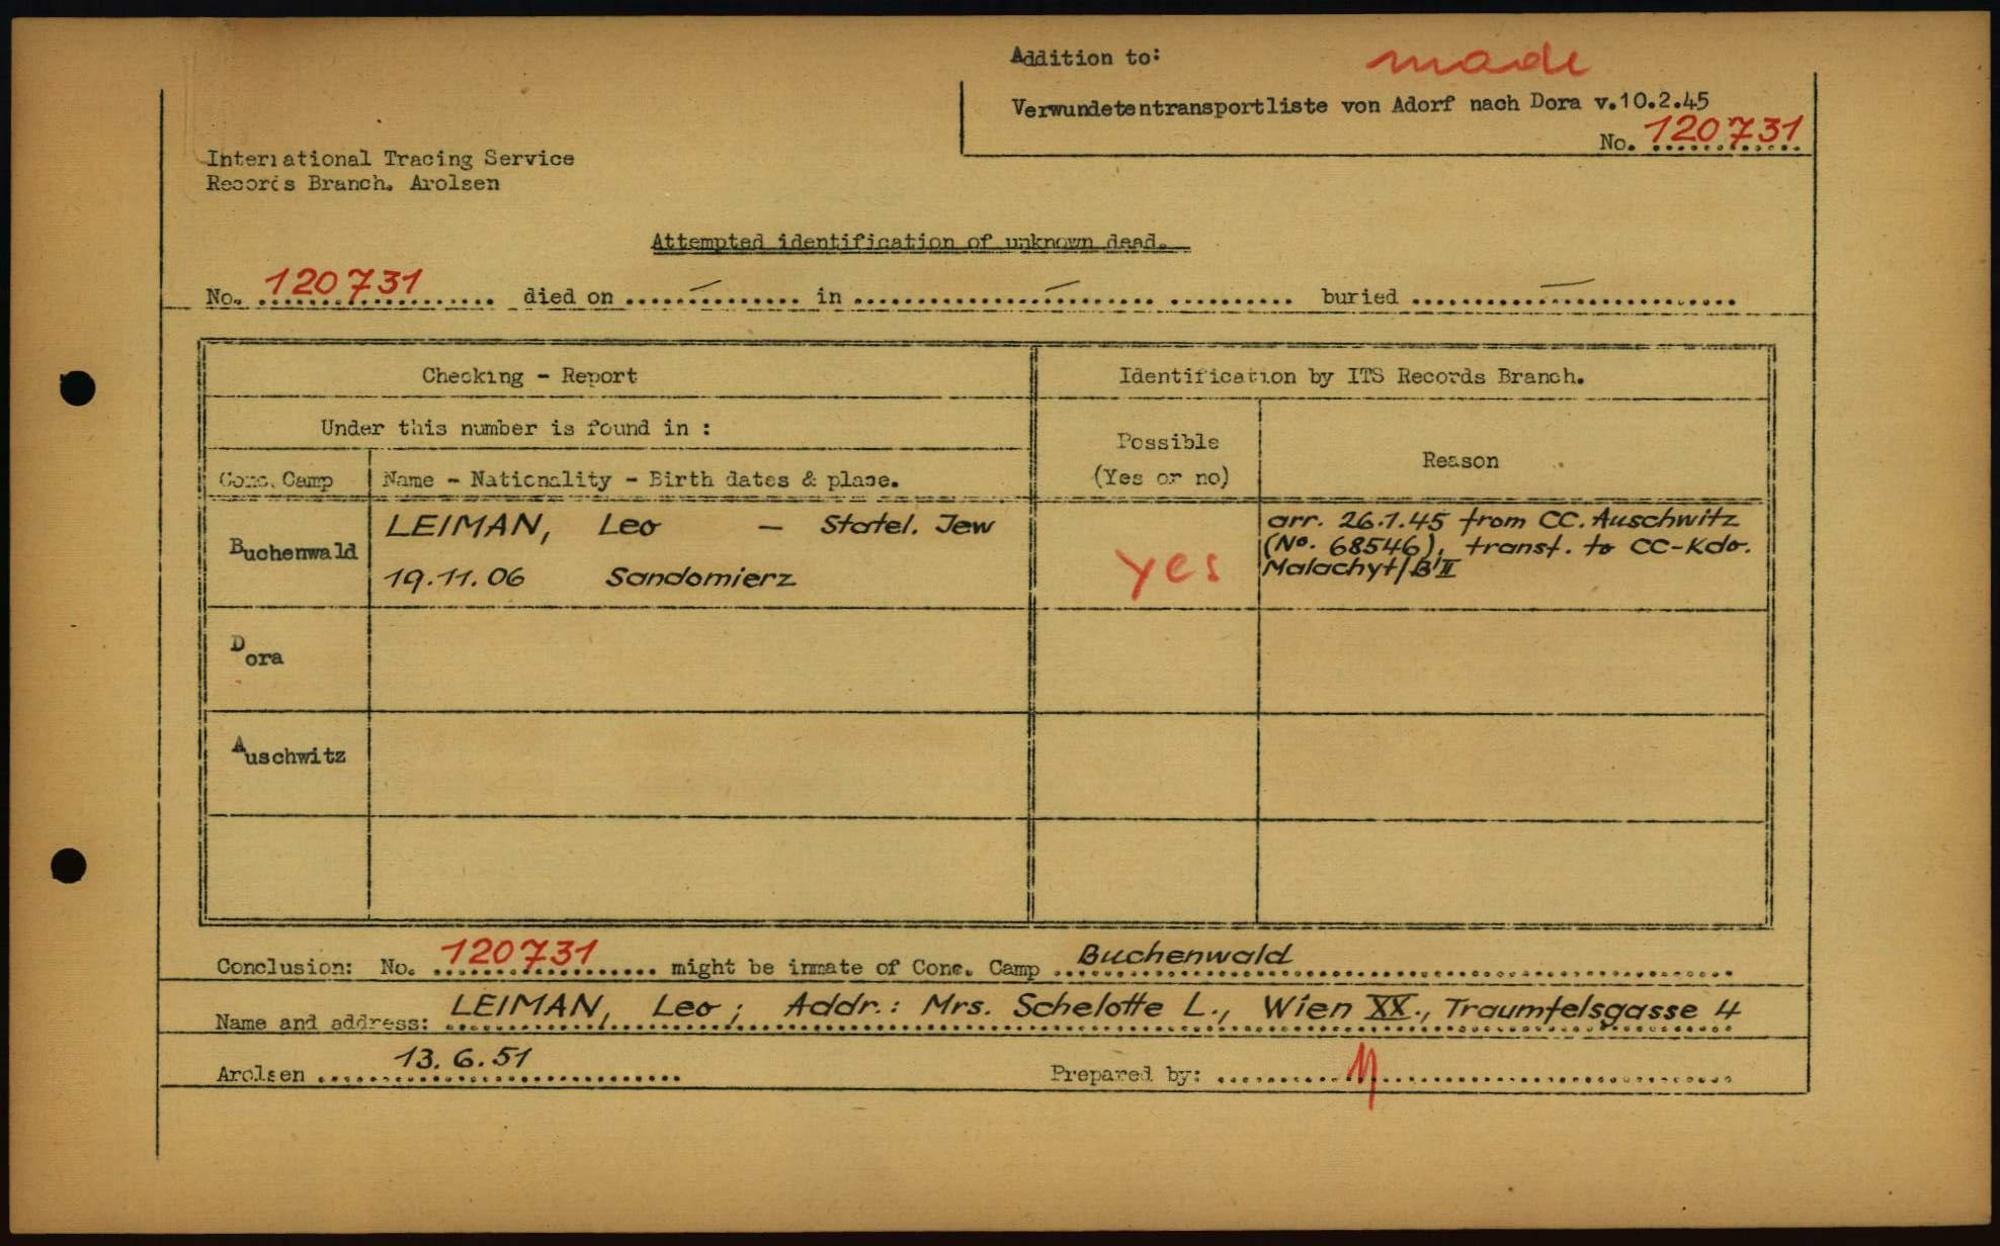 Addition to: made
Verwundetentransportliste von Adorf nach Dora v.10.2.45
No. 120731
International Tracing Service
Records Branch. Arolsen
Attempted identification of unknown dead.
No. 120731 died on — in — buried —
Checking - Report
Identification by ITS Records Branch.
Under this number is found in :
Possible
(Yes or no)
Reason
Conc. Camp
Name - Nationality - Birth dates & place.
Buchenwald
LEIMAN, Leo — Statel. Jew
19.11.06 Sandomierz
yes
arr. 26.1.45 from CC. Auschwitz
(No. 68546), transf. to CC-Kdo.
Malachyt/BII
Dora
Auschwitz
Conclusion: No. 120731 might be inmate of Conc. Camp Buchenwald
Name and address: LEIMAN, Leo; Addr.: Mrs. Schelotte L., Wien XX., Traumfelsgasse 4
Arolsen 13.6.51
Prepared by: